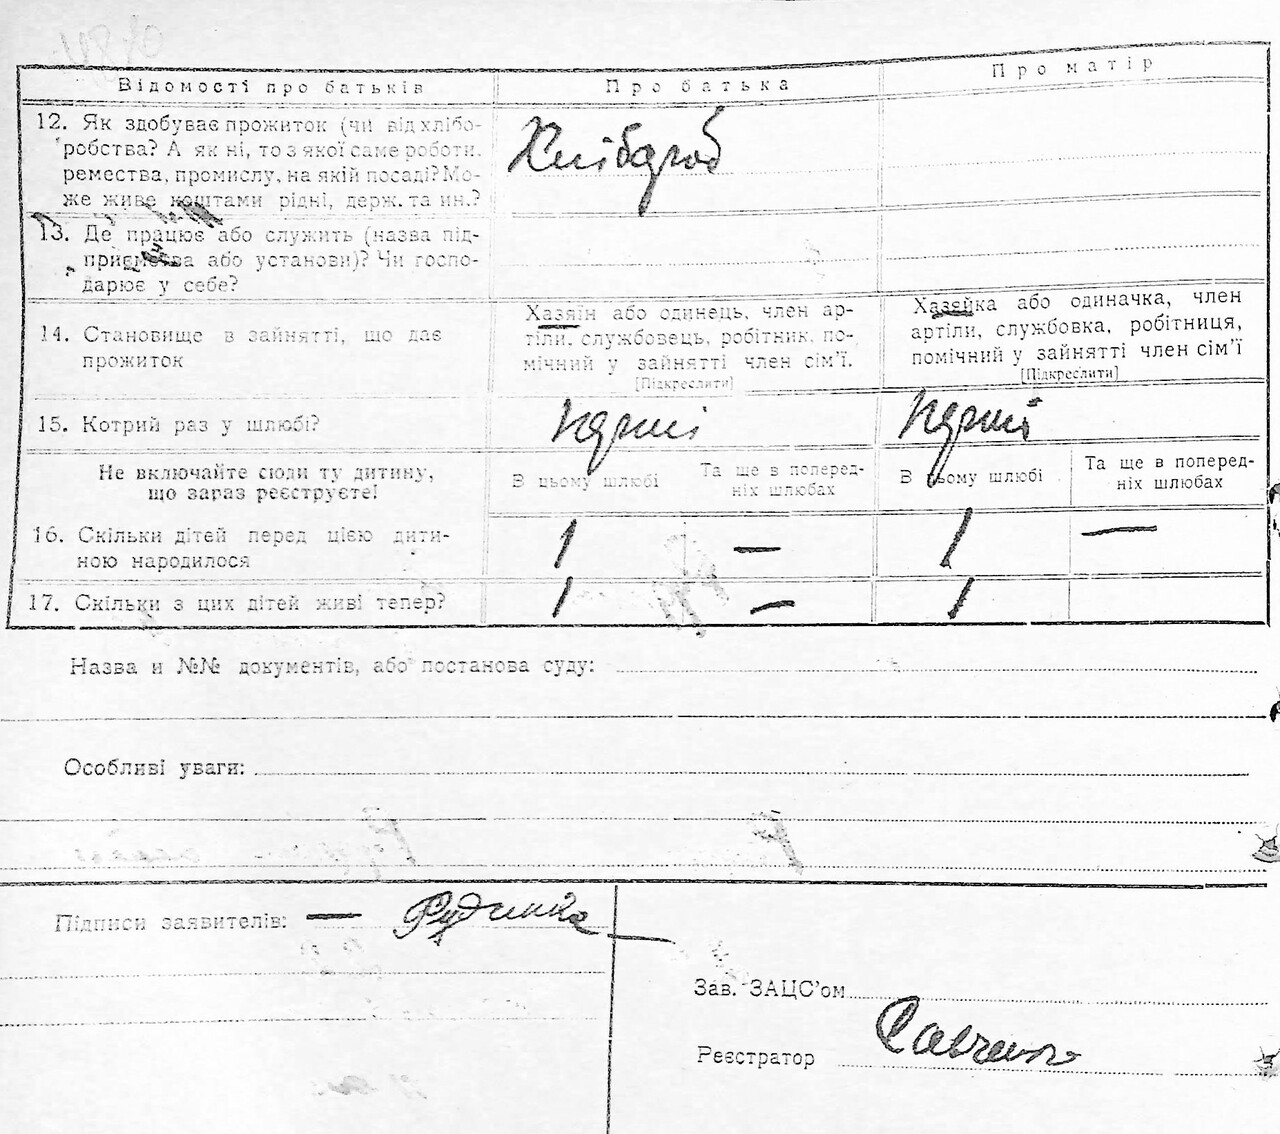 Відомості про батьків
Про батька
Про матір
12. Як здобуває прожиток (чи від хлібо-
робства? А як ні, то з якої саме роботи,
ремества, промислу, на якій посаді? Мо-
же живе коштами рідні, держ. та ин.?
Хлібороб
13. Де працює або служить (назва під-
приємства або установи)? Чи госпо-
дарює у себе?
14. Становище в зайнятті, що дає
прожиток
Хазяїн або одинець, член ар-
тіли, службовець, робітник, по-
мічний у зайнятті член сім'ї.
[Підкреслити]
Хазяйка або одиначка, член
артіли, службовка, робітниця,
помічний у зайнятті член сім'ї
[Підкреслити]
15. Котрий раз у шлюбі?
Не включайте сюди ту дитину,
що зараз реєструєте!
В цьому шлюбі
Та ще в поперед-
ніх шлюбах
В цьому шлюбі
Та ще в поперед-
ніх шлюбах
16. Скільки дітей перед цією дити-
ною народилося
1 — 1 —
17. Скільки з цих дітей живі тепер?
1 — 1
Назва и №№ документів, або постанова суду:
Особливі уваги:
Підписи заявителів: —
Зав. ЗАЦС'ом
Реєстратор